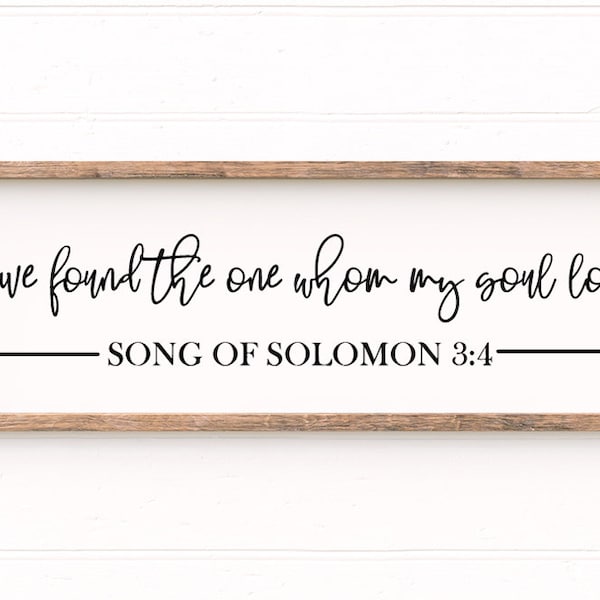 ve found the one whom my soul lo
SONG OF SOLOMON 3:4